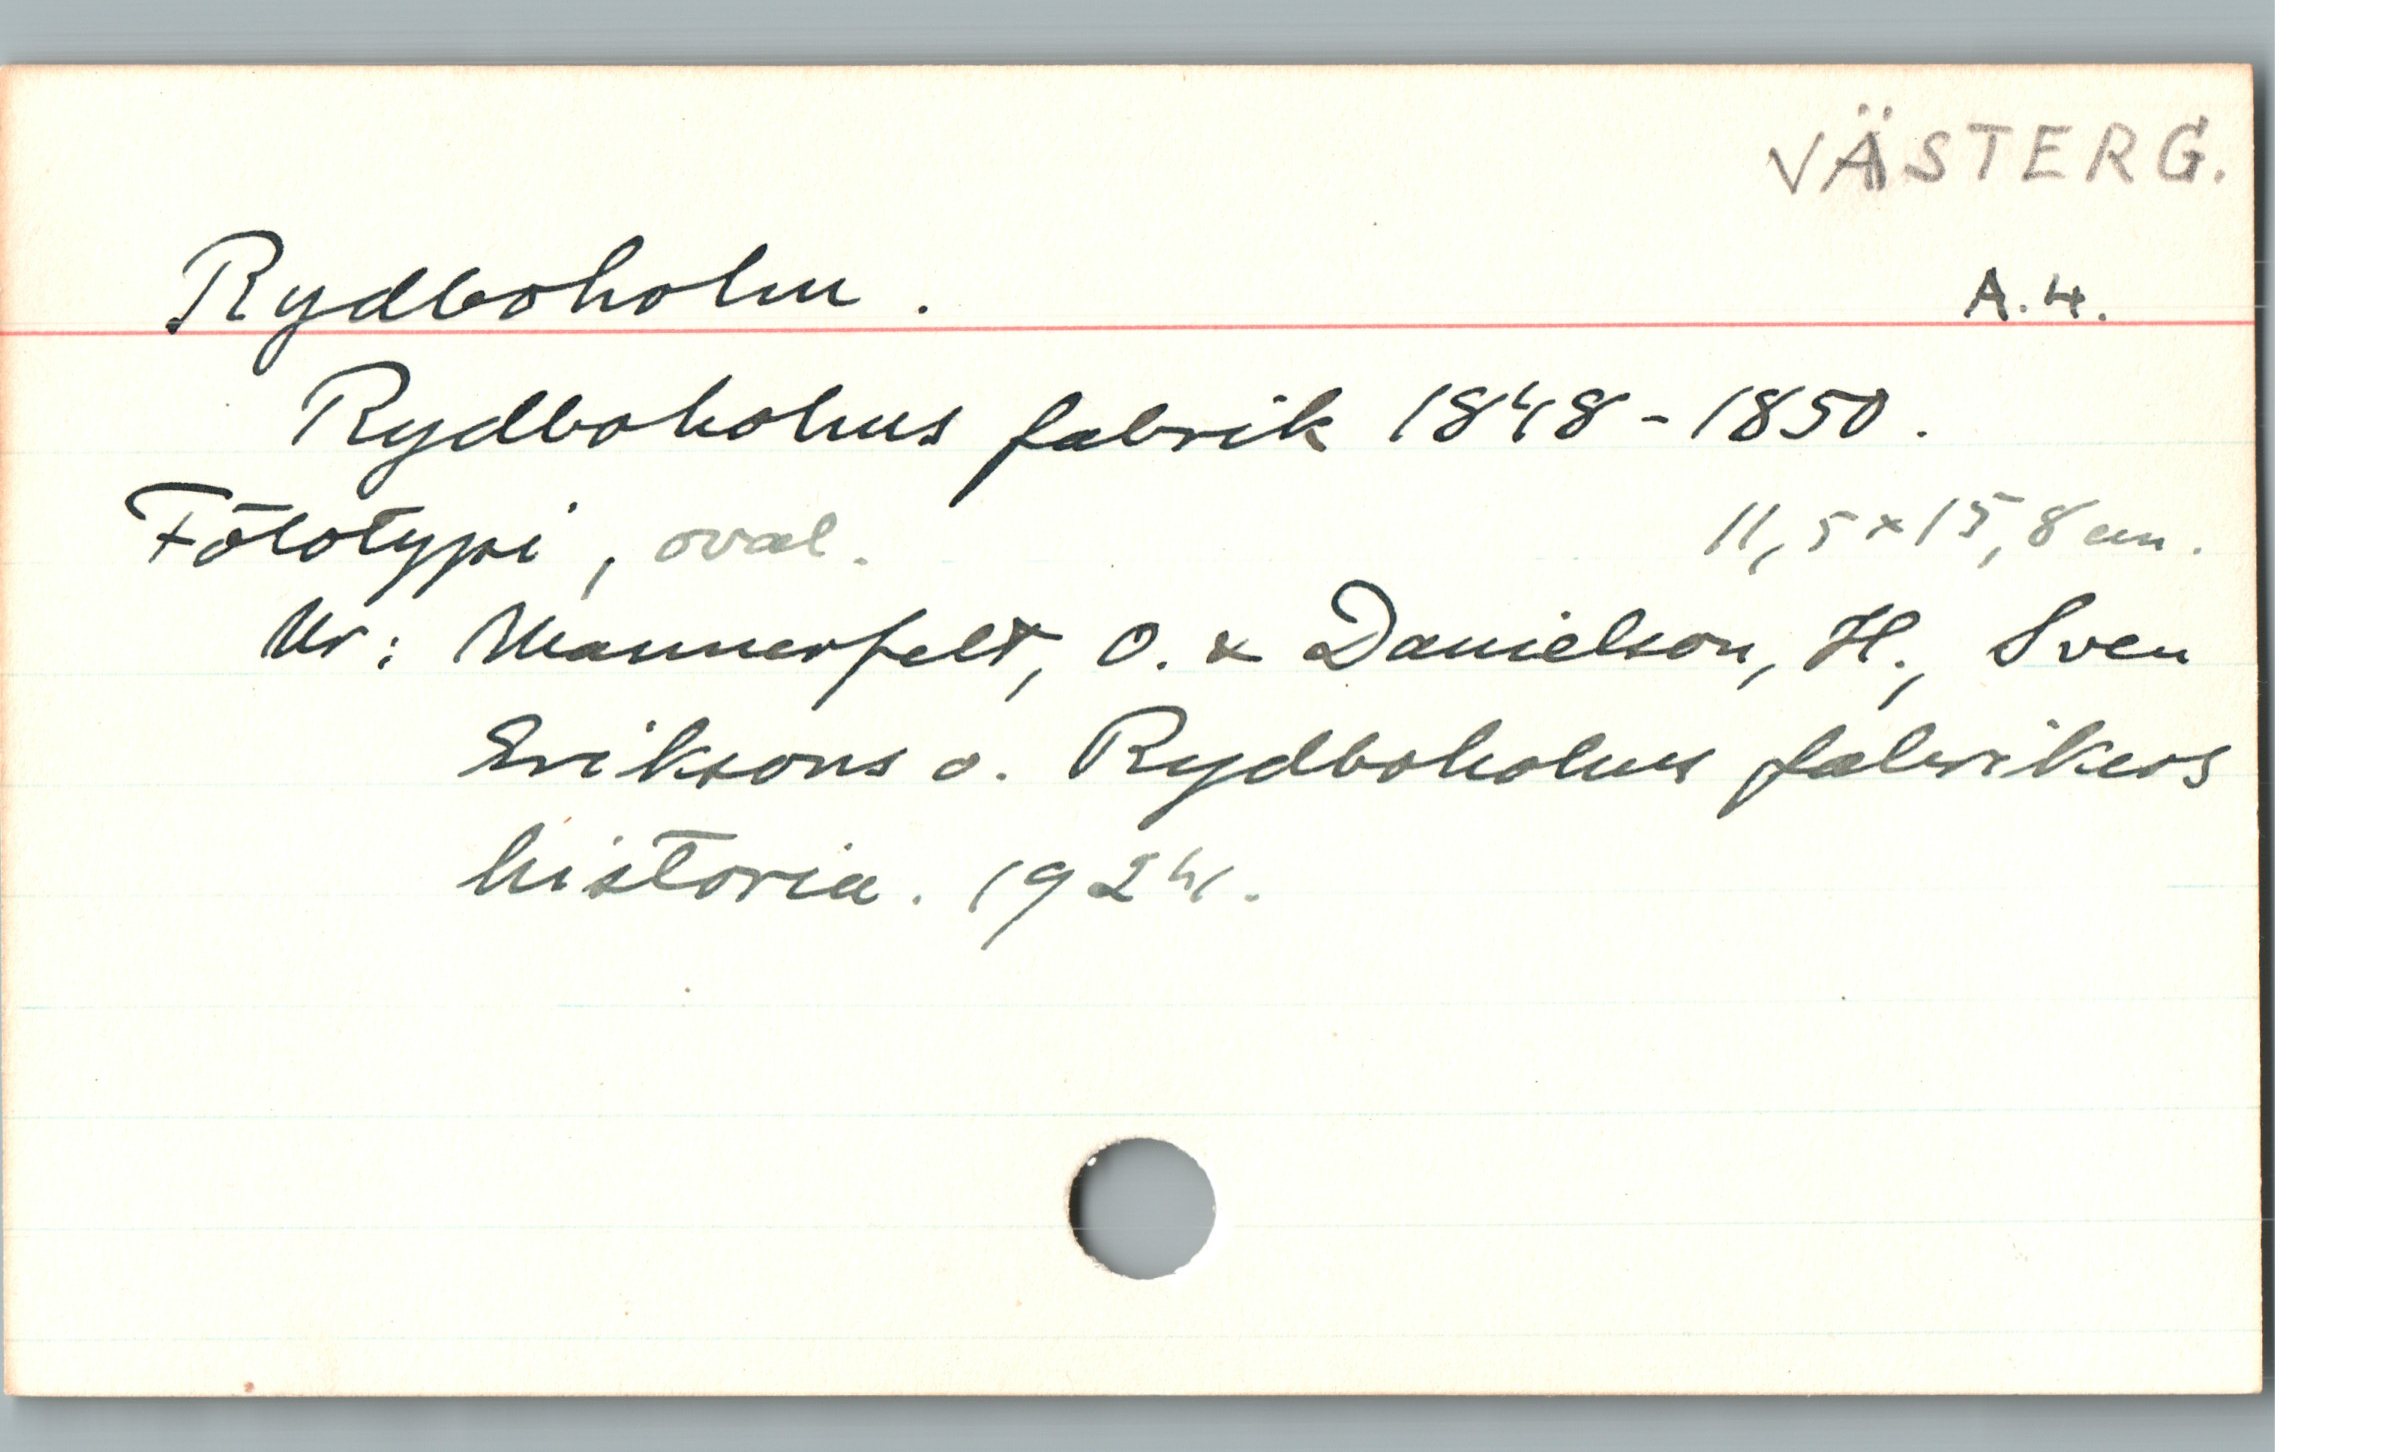 VÄSTERG.
Rydboholm. A.4.
Rydboholms fabrik 1848-1850.
Fototypi, oval. 11,5x15,8 cm.
Ur: Mannerfelt, O. & Danielson, H., Sven
Eriksons o. Rydboholms fabrikers
historia. 1924.